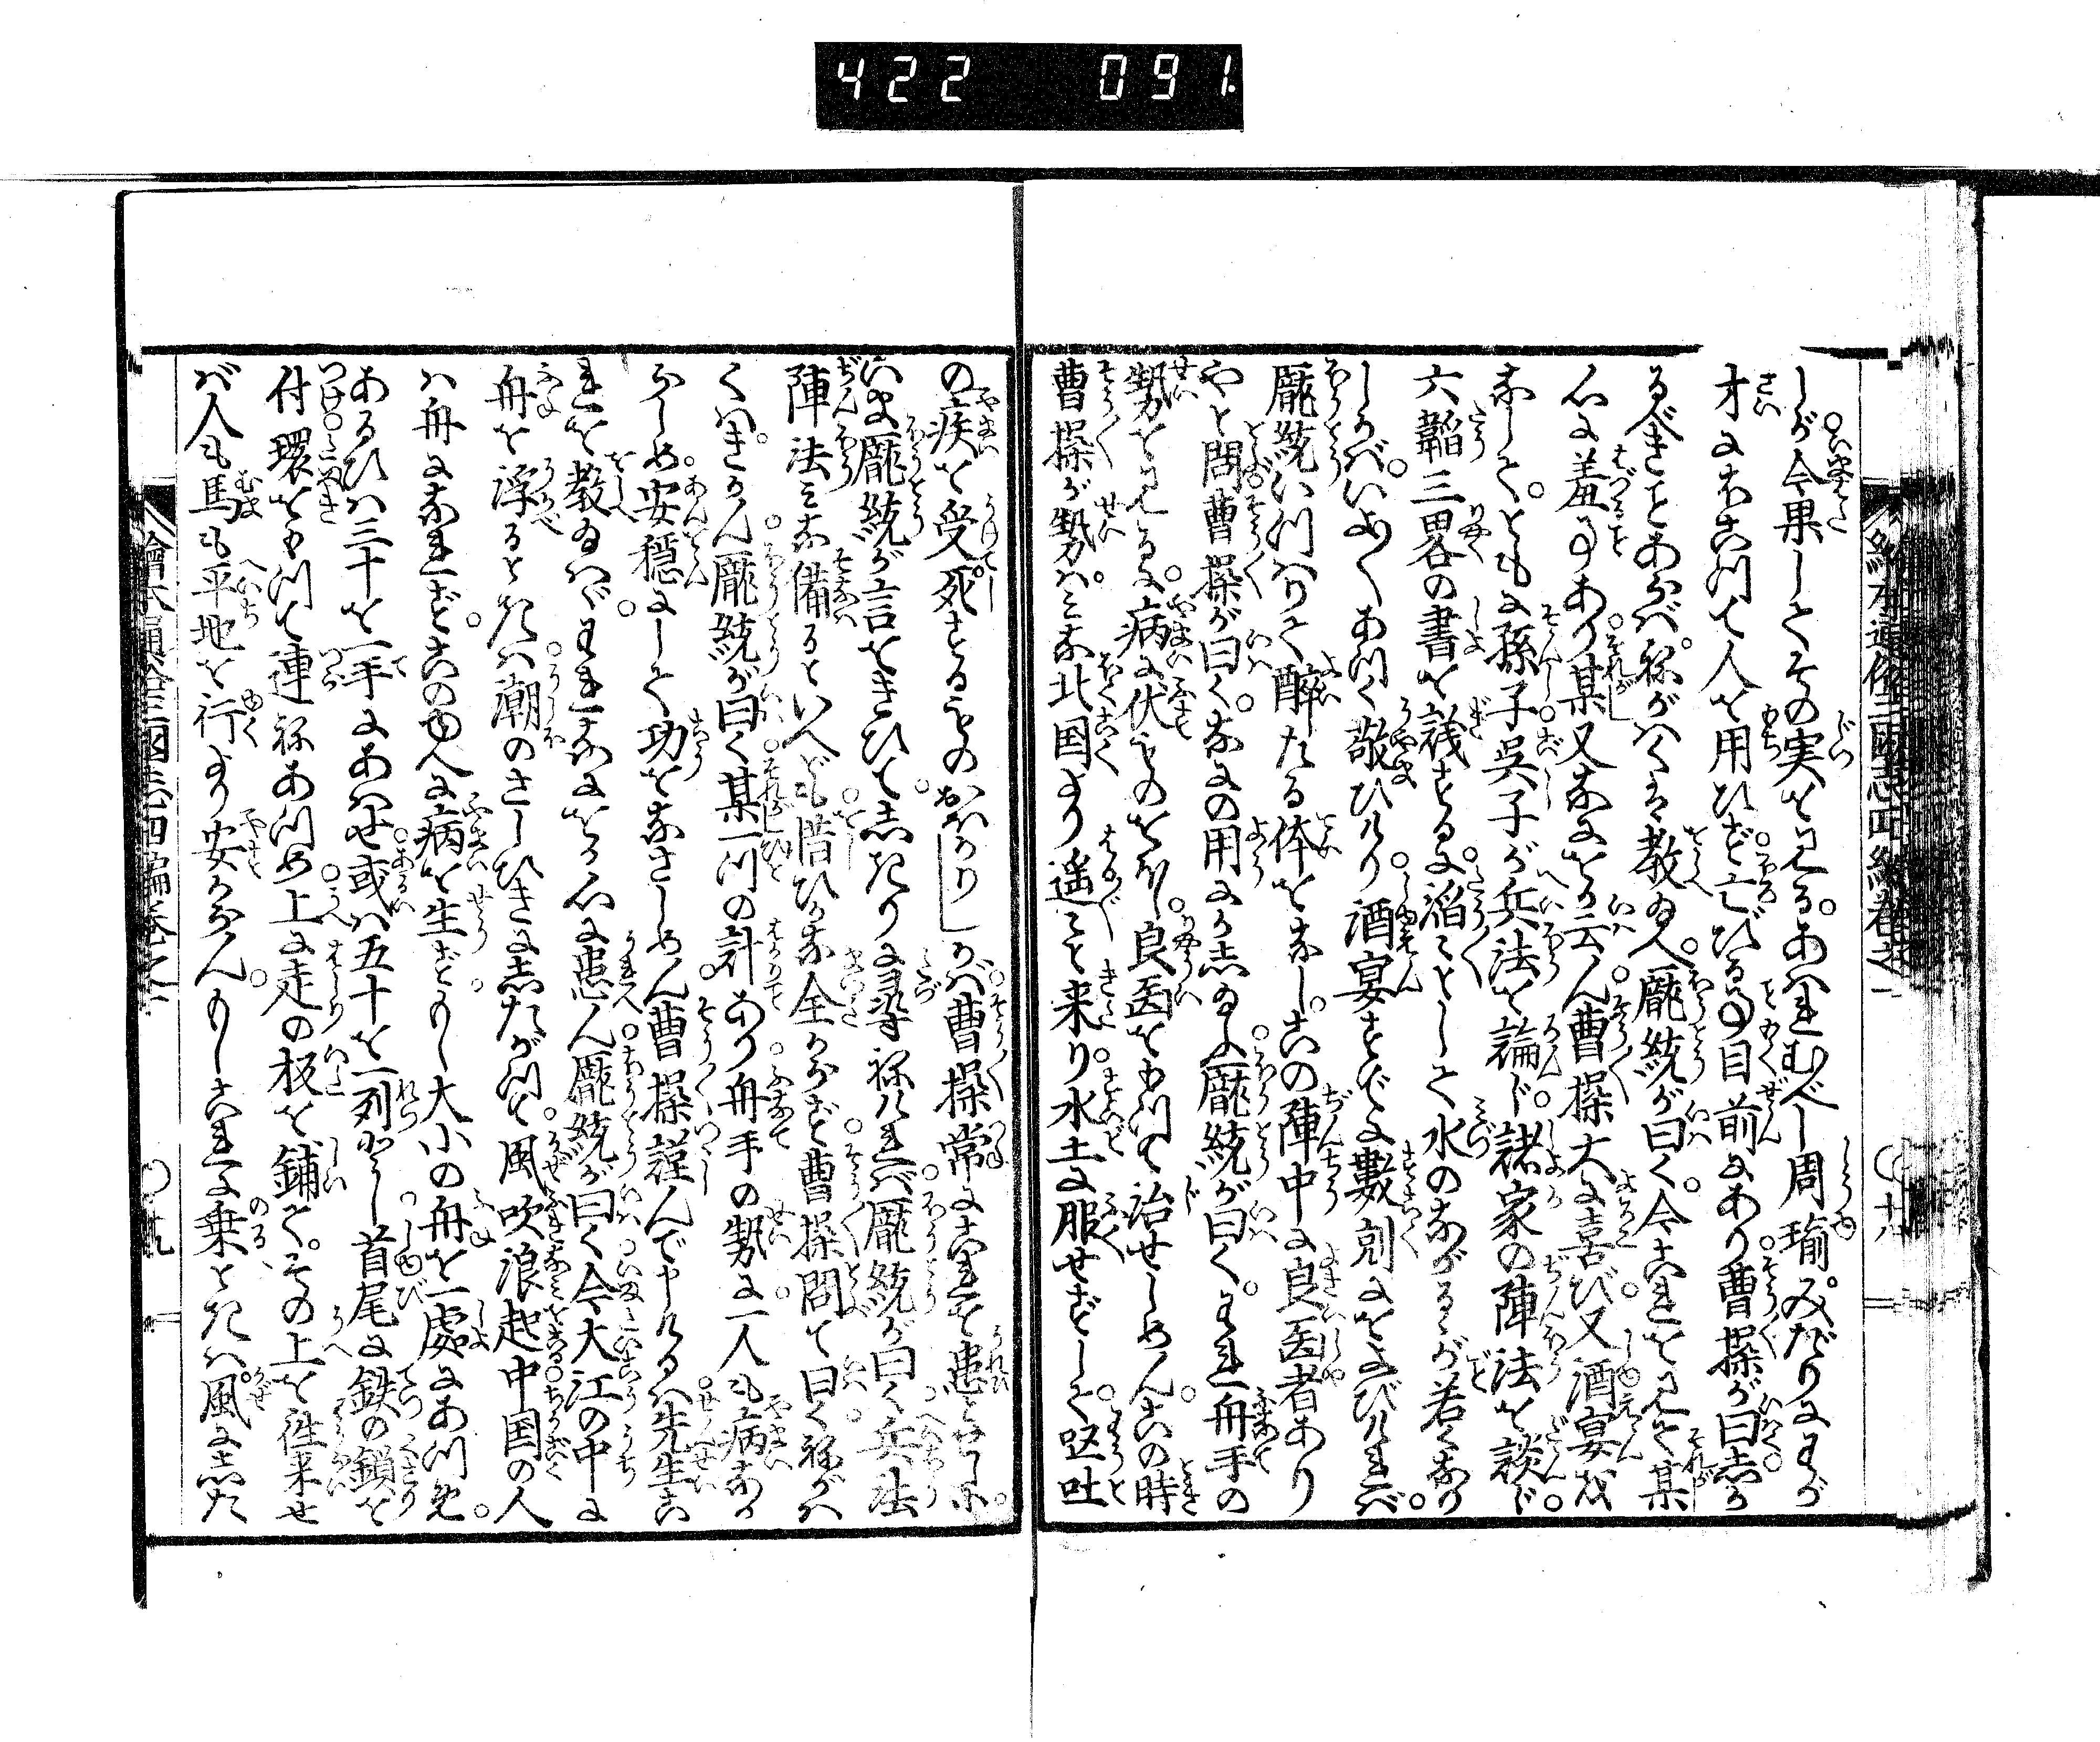 422 091
しが今果してその実を見る。あはれむべし周瑜。みだりにわが
才にほこつて人を用ひず亡びる事目前にあり曹操が曰しか
るべきことあらば。ねがはくは教給へ。龐統が曰く。今これを見て某
心に羞る事あり某又なにをか云ん。曹操大に喜び。又酒宴を
なして。ともに孫子呉子が兵法を論じ。諸家の陣法を談ず。
六韜三畧の書を議するに。滔々として水のながるゝが若くなり
しかば。いよ〱あつく敬ひけり。酒宴すでに數刻におよびければ。
龐統いつはりて醉たる体をなし。この陣中に良医者あり
やと問。曹操が曰く。なにの用にかし給ふ。龐統が曰く。われ舟手の
勢を見るに。病に伏ものをほし。良医をもつて治せしめん。この時
曹操が勢は。みな北国より遥々と来り。水土に服せずして。呕吐
の疾を受。死するものおほかりしかば。曹操常にこれを患とせしに。
いま龐統が言をきひて。しきりに尋ねければ。龐統が曰く。兵法
陣法みな備るといへども。惜ひかな全からず。曹操問て曰く。ねがは
くはきかん。龐統が曰く。某一つの計あり。舟手の勢に。一人も病なか
らしめ。安穏にして功をなさしめん。曹操謹んで申けるは。先生こ
れを教給はゞ。われなにをか心に患ん。龐統が曰く。今大江の中に
舟を浮るときは。潮のさしひきにしたがつて。風吹浪起。中国の人
は舟になれず。この由へに病を生ずもし大小の舟を一處にあつめ。
あるひは三十を一手にあはせ。或は五十を一列とし。首尾に鉄の鎖を
付。環をもつて連ねあつめ。上に走の板を鋪て。その上を徃来せ
ば人も馬も平地を行より安からん。もしこれに乗ときは。風にした
繪本通俗三国志四編巻之一
十八
繪本通俗三国志四編巻之一
十九